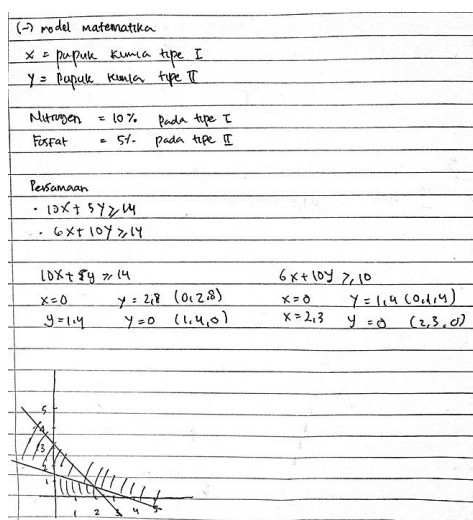 (→) model matematika
x = pupuk kimia tipe I
y = pupuk kimia tipe II
Nitrogen = 10% pada tipe I
Fosfat = 5% pada tipe II
Persamaan
- 10x + 5y ≥ 14
- 6x + 10y ≥ 14
10x + 5y ≥ 14
x=0 y = 2,8 (0,2,8)
y=1,4 y=0 (1,4,0)
6x + 10y ≥ 10
x=0 y = 1,4 (0,1,4)
x=2,3 y=0 (2,3,0)
5
4
3
2
1
1 2 3 4 5